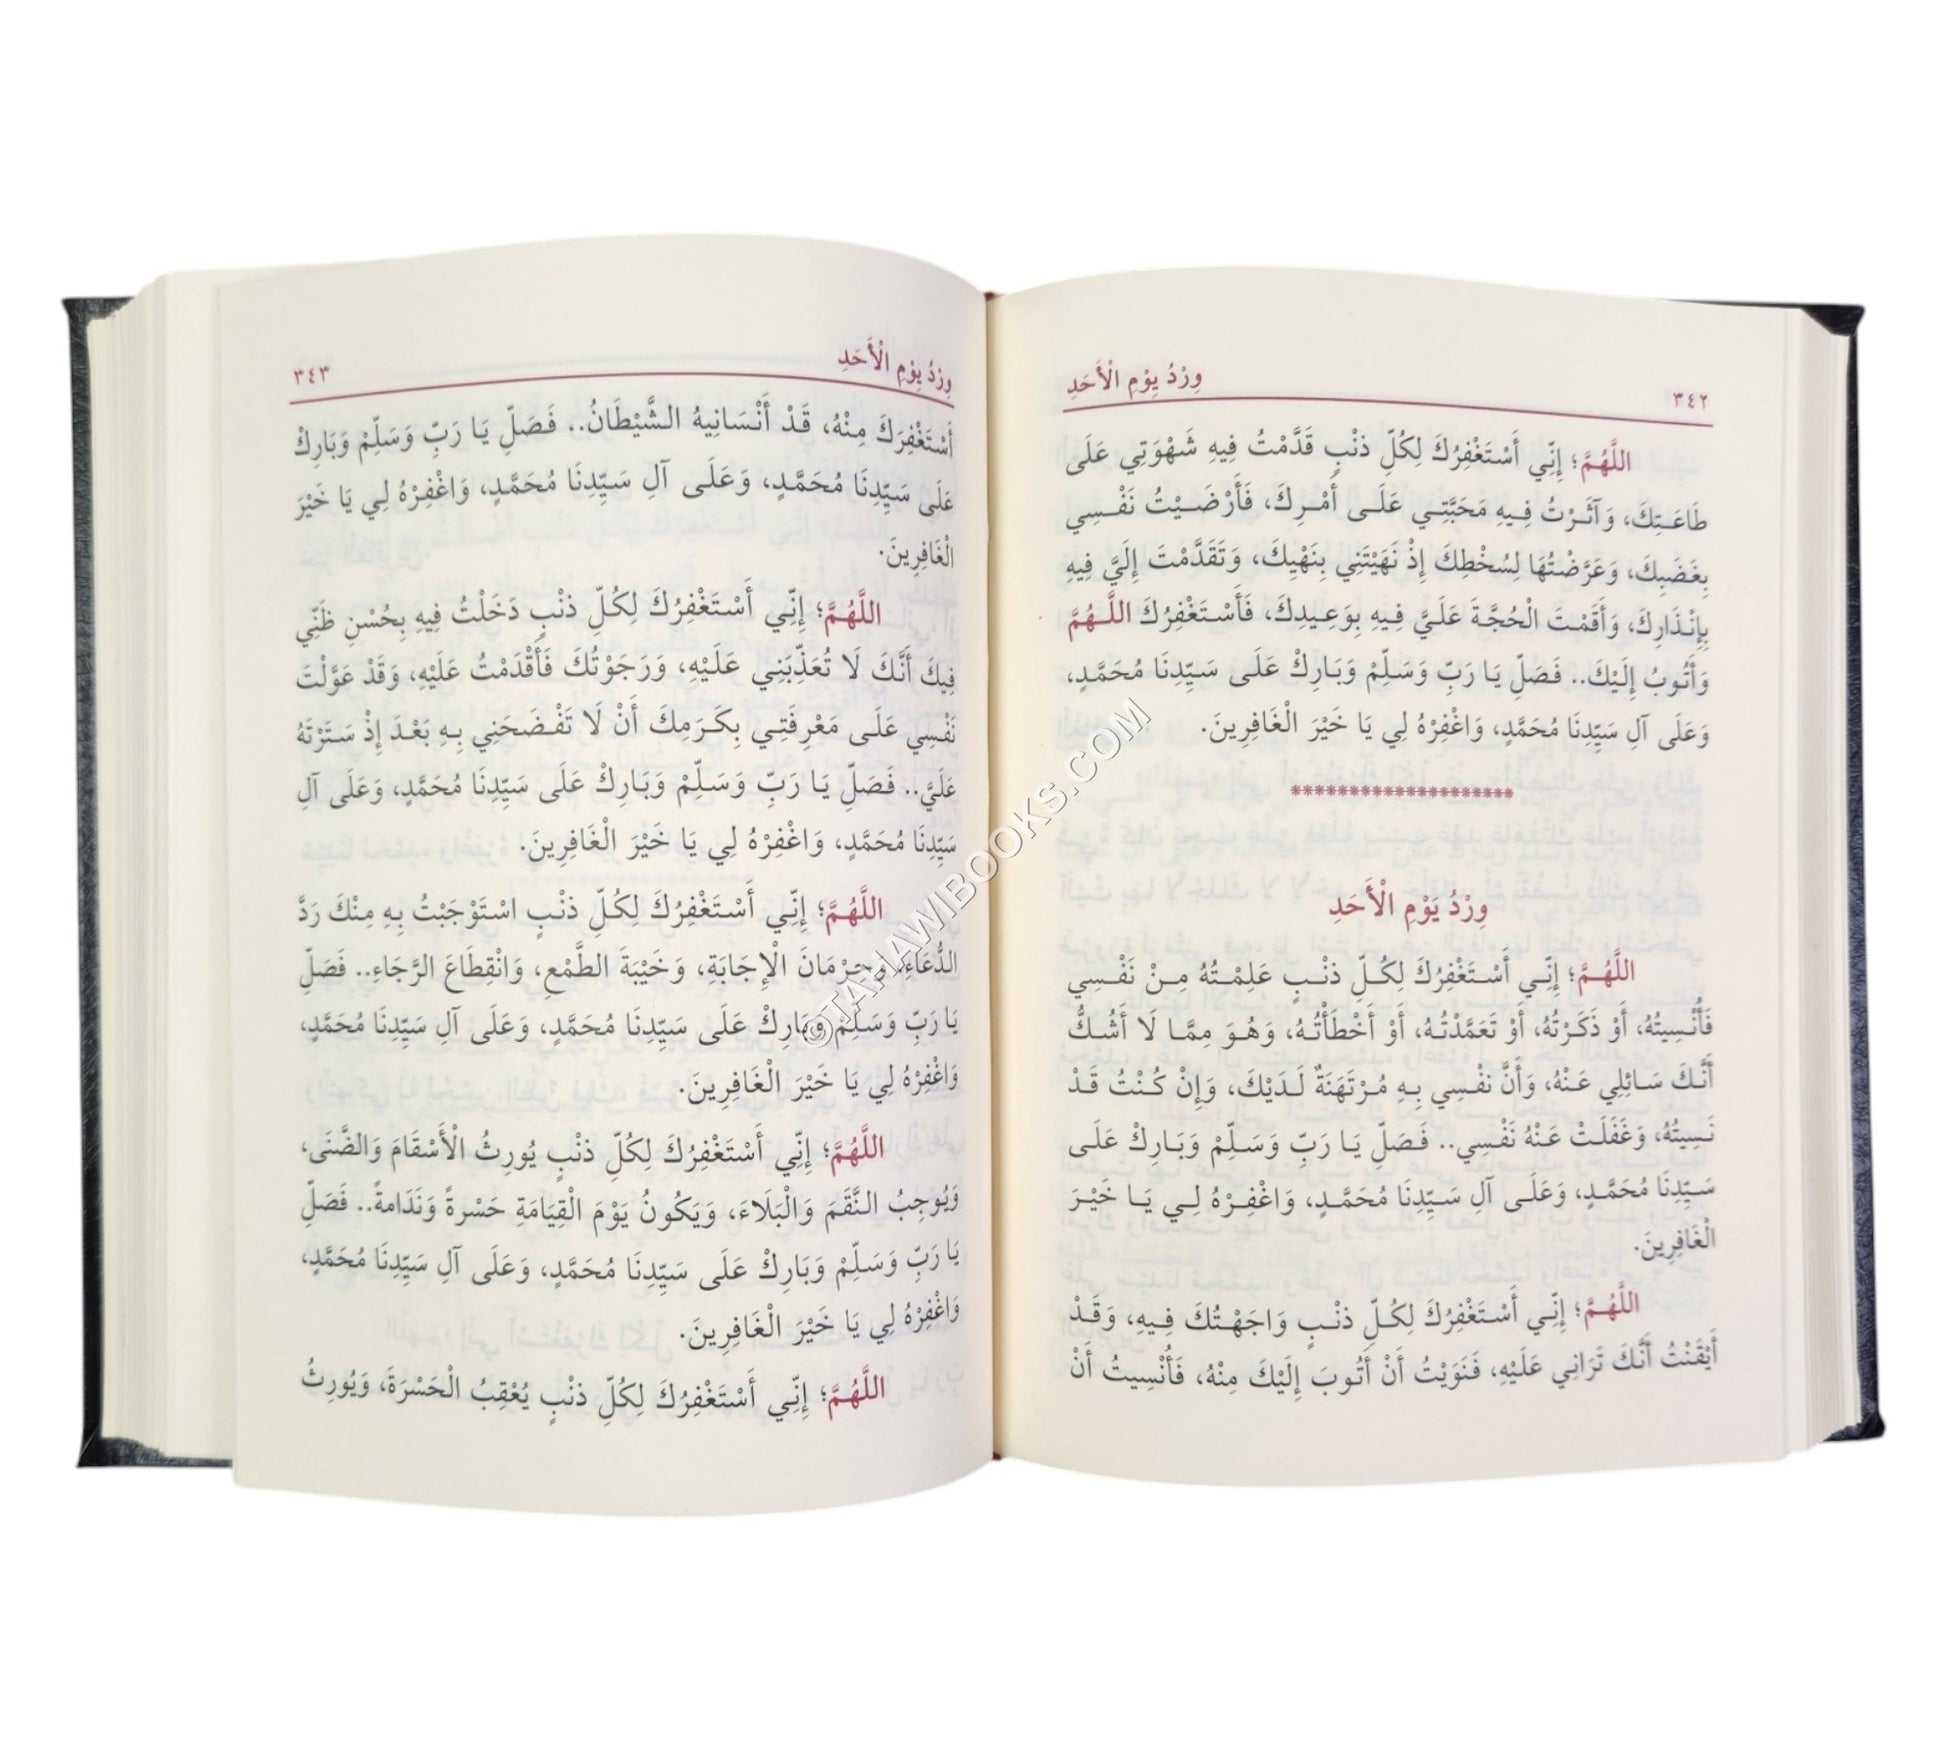 ٣٤٢ وِرْدُ يَوْمِ الْأَحَدِ
اللَّهُمَّ؛ إِنِّي أَسْتَغْفِرُكَ لِكُلِّ ذَنْبٍ قَدَّمْتُ فِيهِ شَهْوَتِي عَلَى
طَاعَتِكَ، وَآثَرْتُ فِيهِ مَحَبَّتِي عَلَى أَمْرِكَ، فَأَرْضَيْتُ نَفْسِي
بِغَضَبِكَ، وَعَرَّضْتُهَا لِسُخْطِكَ إِذْ نَهَيْتَنِي بِنَهْيِكَ، وَتَقَدَّمْتَ إِلَيَّ فِيهِ
بِإِنْذَارِكَ، وَأَقَمْتَ الْحُجَّةَ عَلَيَّ فِيهِ بِوَعِيدِكَ، فَأَسْتَغْفِرُكَ اللَّهُمَّ
وَأَتُوبُ إِلَيْكَ.. فَصَلِّ يَا رَبِّ وَسَلِّمْ وَبَارِكْ عَلَى سَيِّدِنَا مُحَمَّدٍ،
وَعَلَى آلِ سَيِّدِنَا مُحَمَّدٍ، وَاغْفِرْهُ لِي يَا خَيْرَ الْغَافِرِينَ.
********************
وِرْدُ يَوْمِ الْأَحَدِ
اللَّهُمَّ؛ إِنِّي أَسْتَغْفِرُكَ لِكُلِّ ذَنْبٍ عَلِمْتُهُ مِنْ نَفْسِي
فَأُنْسِيتُهُ، أَوْ ذَكَرْتُهُ، أَوْ تَعَمَّدْتُهُ، أَوْ أَخْطَأْتُهُ، وَهُوَ مِمَّا لَا أَشُكُّ
أَنَّكَ سَائِلِي عَنْهُ، وَأَنَّ نَفْسِي بِهِ مُرْتَهَنَةٌ لَدَيْكَ، وَإِنْ كُنْتُ قَدْ
نَسِيتُهُ، وَغَفَلَتْ عَنْهُ نَفْسِي.. فَصَلِّ يَا رَبِّ وَسَلِّمْ وَبَارِكْ عَلَى
سَيِّدِنَا مُحَمَّدٍ، وَعَلَى آلِ سَيِّدِنَا مُحَمَّدٍ، وَاغْفِرْهُ لِي يَا خَيْرَ
الْغَافِرِينَ.
اللَّهُمَّ؛ إِنِّي أَسْتَغْفِرُكَ لِكُلِّ ذَنْبٍ وَاجَهْتُكَ فِيهِ، وَقَدْ
أَيْقَنْتُ أَنَّكَ تَرَانِي عَلَيْهِ، فَنَوَيْتُ أَنْ أَتُوبَ إِلَيْكَ مِنْهُ، فَأُنْسِيتُ أَنْ
وِرْدُ يَوْمِ الْأَحَدِ ٣٤٣
أَسْتَغْفِرَكَ مِنْهُ، قَدْ أَنْسَانِيهُ الشَّيْطَانُ.. فَصَلِّ يَا رَبِّ وَسَلِّمْ وَبَارِكْ
عَلَى سَيِّدِنَا مُحَمَّدٍ، وَعَلَى آلِ سَيِّدِنَا مُحَمَّدٍ، وَاغْفِرْهُ لِي يَا خَيْرَ
الْغَافِرِينَ.
اللَّهُمَّ؛ إِنِّي أَسْتَغْفِرُكَ لِكُلِّ ذَنْبٍ دَخَلْتُ فِيهِ بِحُسْنِ ظَنِّي
فِيكَ أَنَّكَ لَا تُعَذِّبَنِي عَلَيْهِ، وَرَجَوْتُكَ فَأَقْدَمْتُ عَلَيْهِ، وَقَدْ عَوَّلْتَ
نَفْسِي عَلَى مَعْرِفَتِي بِكَرَمِكَ أَنْ لَا تَفْضَحَنِي بِهِ بَعْدَ إِذْ سَتَرْتَهُ
عَلَيَّ.. فَصَلِّ يَا رَبِّ وَسَلِّمْ وَبَارِكْ عَلَى سَيِّدِنَا مُحَمَّدٍ، وَعَلَى آلِ
سَيِّدِنَا مُحَمَّدٍ، وَاغْفِرْهُ لِي يَا خَيْرَ الْغَافِرِينَ.
اللَّهُمَّ؛ إِنِّي أَسْتَغْفِرُكَ لِكُلِّ ذَنْبٍ اسْتَوْجَبْتُ بِهِ مِنْكَ رَدَّ
الدُّعَاءِ، وَحِرْمَانَ الْإِجَابَةِ، وَخَيْبَةَ الطَّمْعِ، وَانْقِطَاعَ الرَّجَاءِ.. فَصَلِّ
يَا رَبِّ وَسَلِّمْ وَبَارِكْ عَلَى سَيِّدِنَا مُحَمَّدٍ، وَعَلَى آلِ سَيِّدِنَا مُحَمَّدٍ،
وَاغْفِرْهُ لِي يَا خَيْرَ الْغَافِرِينَ.
اللَّهُمَّ؛ إِنِّي أَسْتَغْفِرُكَ لِكُلِّ ذَنْبٍ يُورِثُ الْأَسْقَامَ وَالضَّنَى،
وَيُوجِبُ النِّقَمَ وَالْبَلَاءَ، وَيَكُونُ يَوْمَ الْقِيَامَةِ حَسْرَةً وَنَدَامَةً.. فَصَلِّ
يَا رَبِّ وَسَلِّمْ وَبَارِكْ عَلَى سَيِّدِنَا مُحَمَّدٍ، وَعَلَى آلِ سَيِّدِنَا مُحَمَّدٍ،
وَاغْفِرْهُ لِي يَا خَيْرَ الْغَافِرِينَ.
اللَّهُمَّ؛ إِنِّي أَسْتَغْفِرُكَ لِكُلِّ ذَنْبٍ يُعْقِبُ الْحَسْرَةَ، وَيُورِثُ
©TAHAWIBOOKS.COM